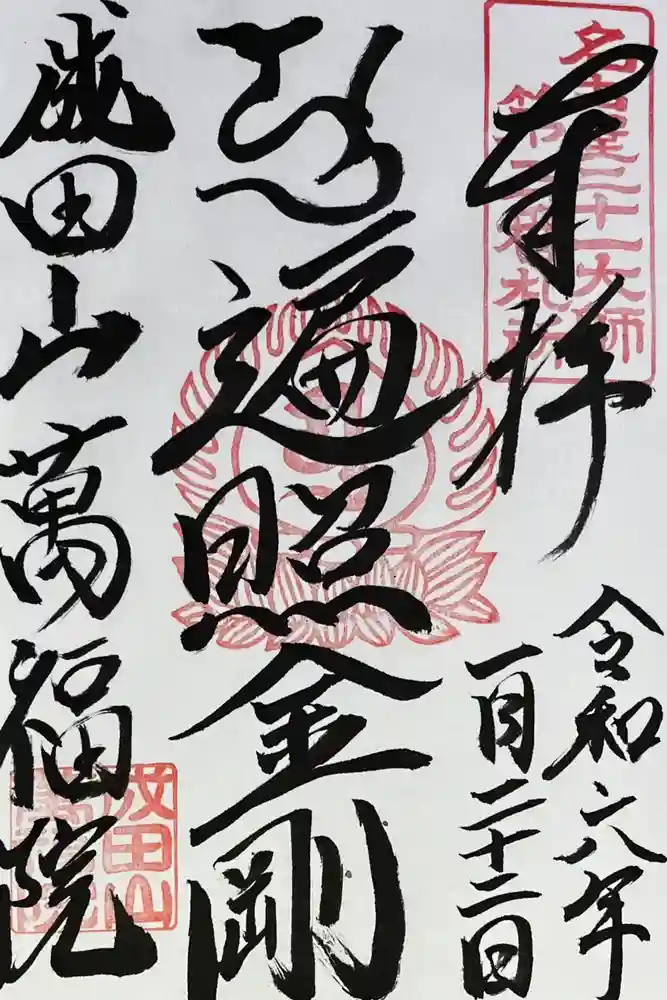 名古屋二十一大師
第 番札所
奉拝
令和六年
一月二十二日
遍照金剛
成田山萬福院
成田山
萬福院